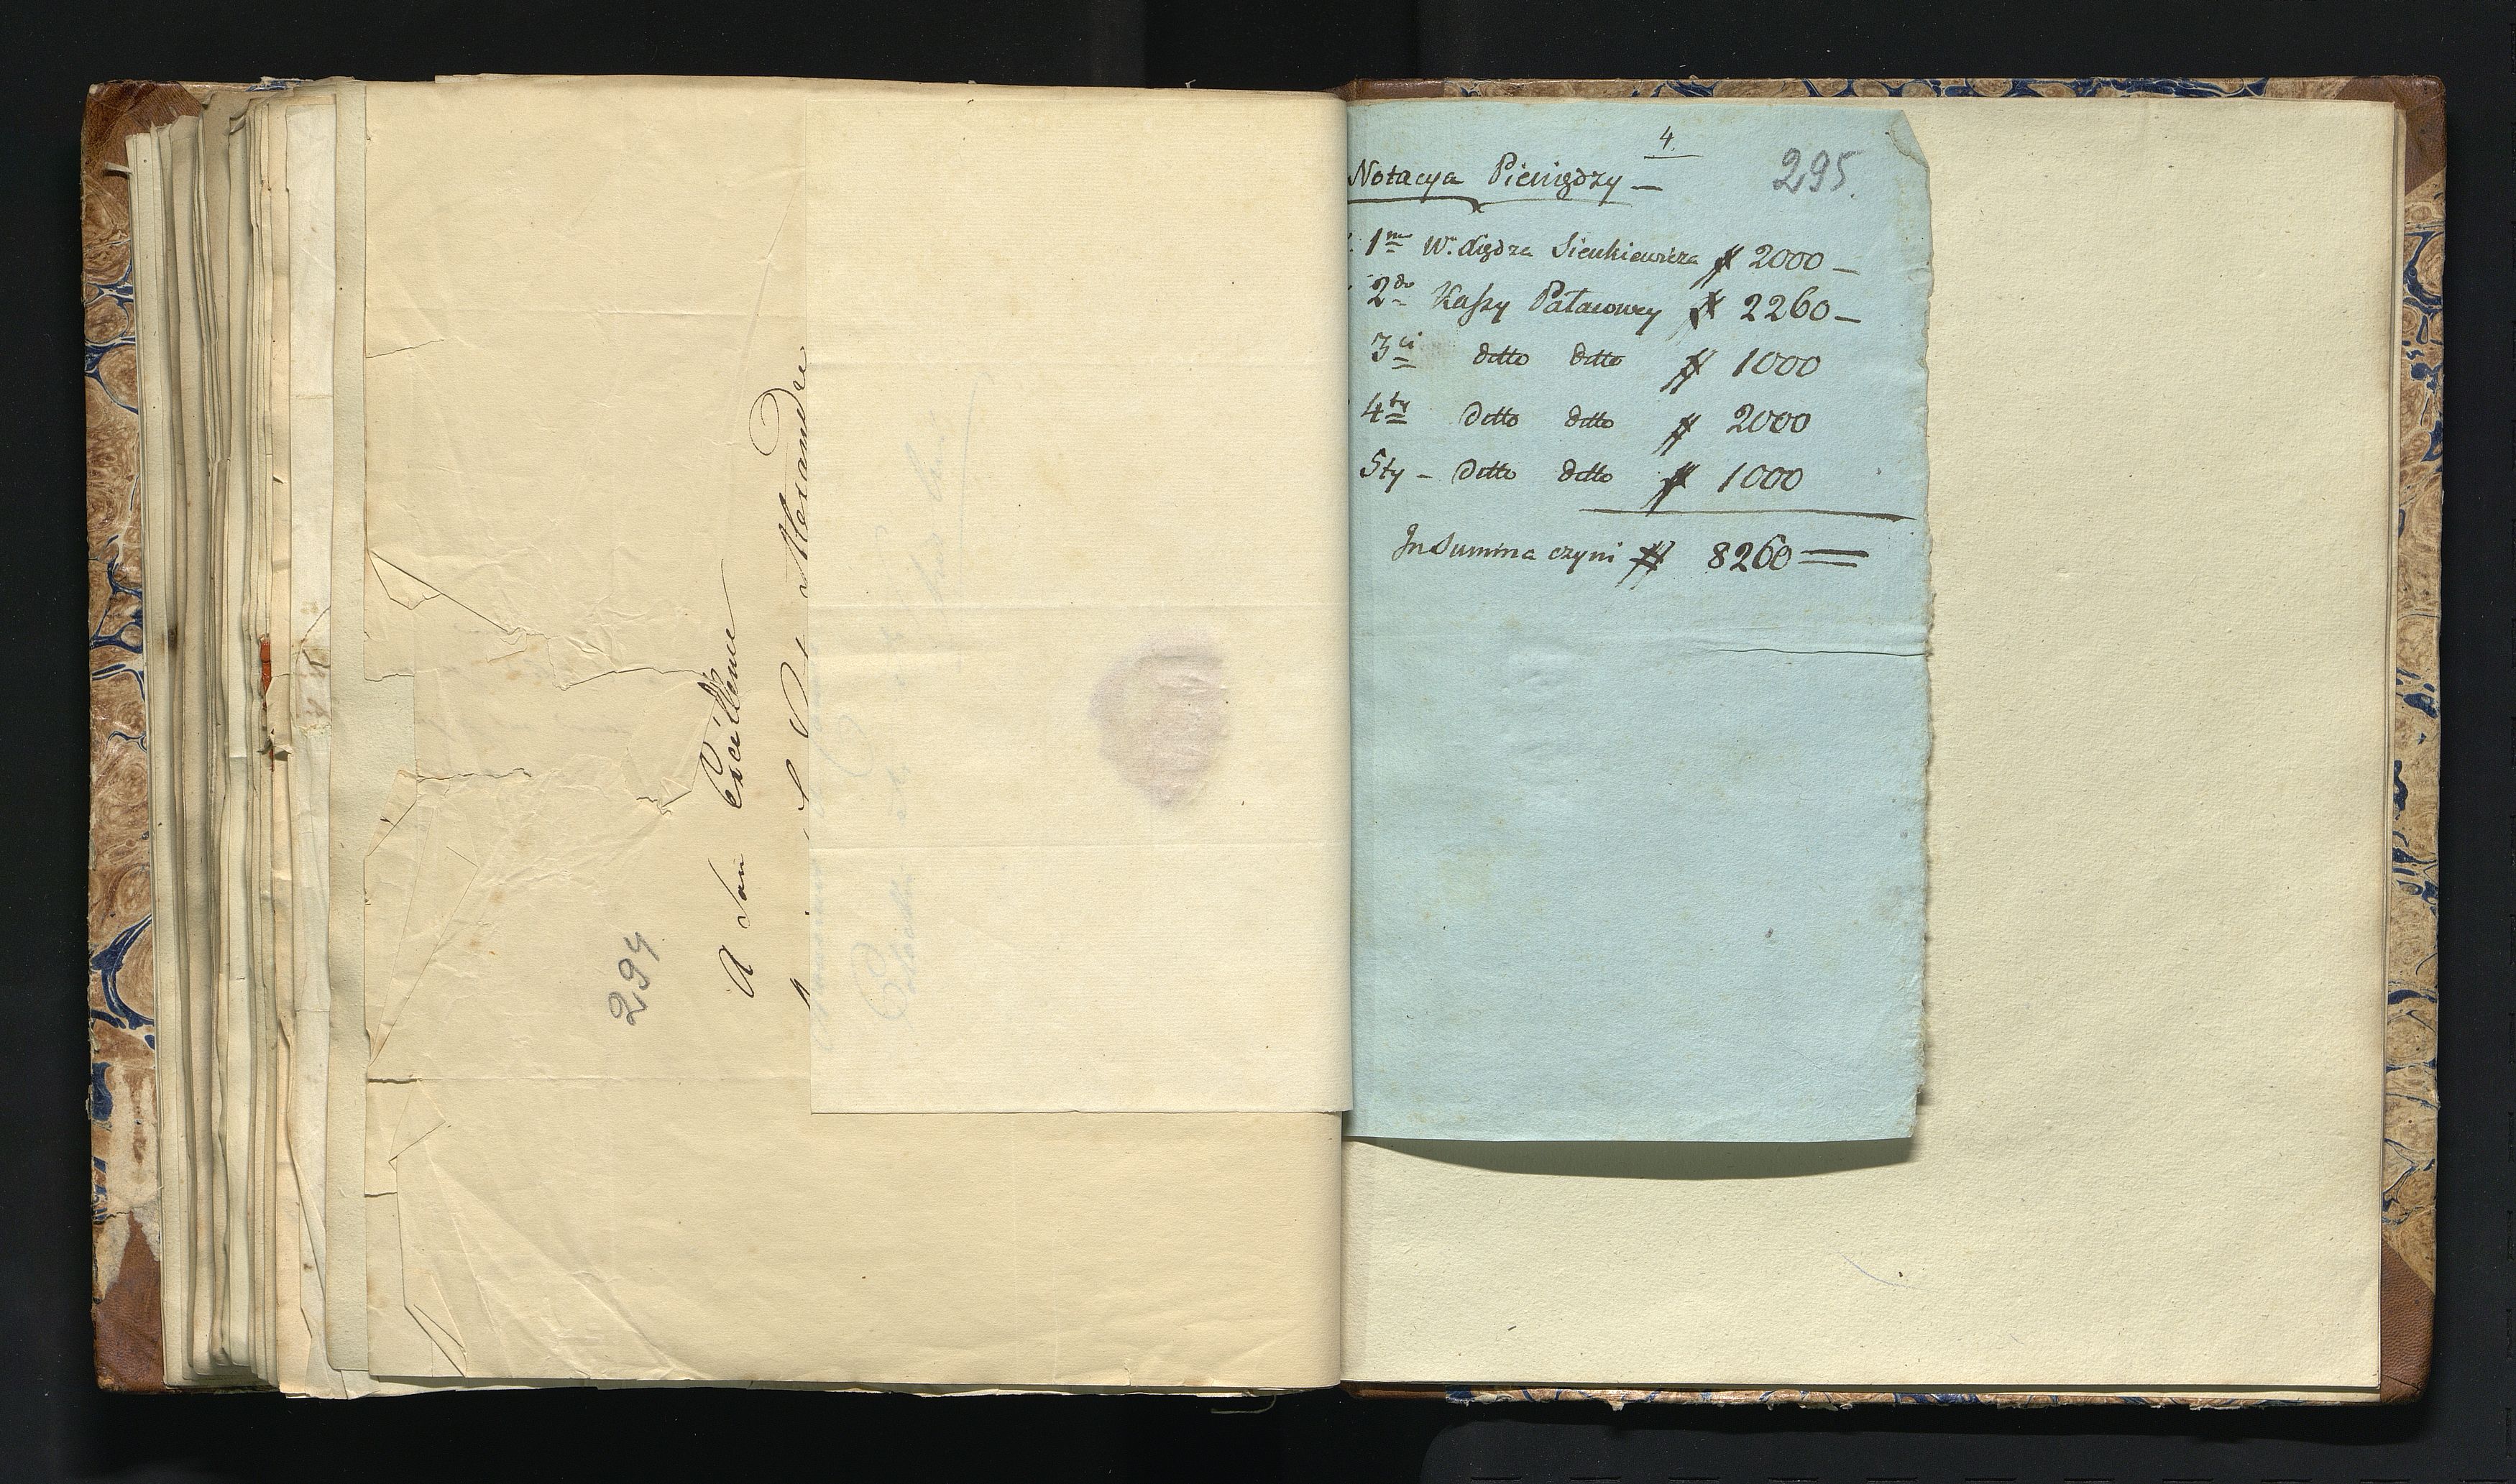 294
A Son Excéllence
Alexandre
4.
295.
Notacya Pieniędzy —
1mo W. Sędzia Sienkiewicza # 2000 —
2do Kaſsy Pałacowey # 2260 —
3ci ditto ditto # 1000
4ty ditto ditto # 2000
5ty — ditto ditto # 1000
In Summa czyni # 8260 =